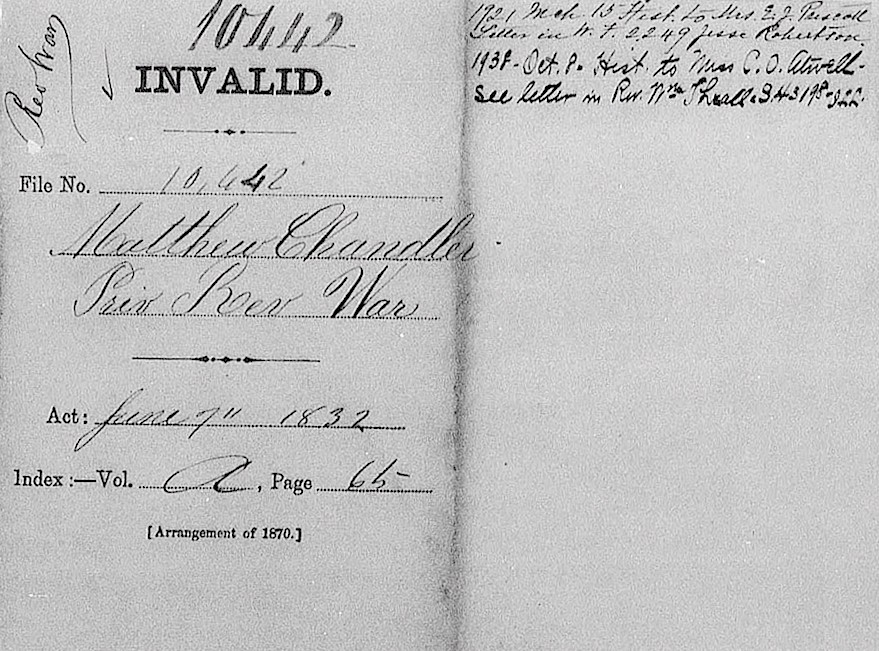 Rev War
10442
INVALID.
File No. 10,442
Matthew Chandler
Priv Rev War
Act: June 7" 1832
Index:—Vol. A, Page 65
[Arrangement of 1870.]
1921 Mch 15 Hist. to Mrs. E. J. Prescott
Letter in W. F. 2249 Jesse Robertson.
1938-Oct. 8. Hist. to Mrs C. O. Atwell.
See letter in Rev. Wm Thrall. S.43198-